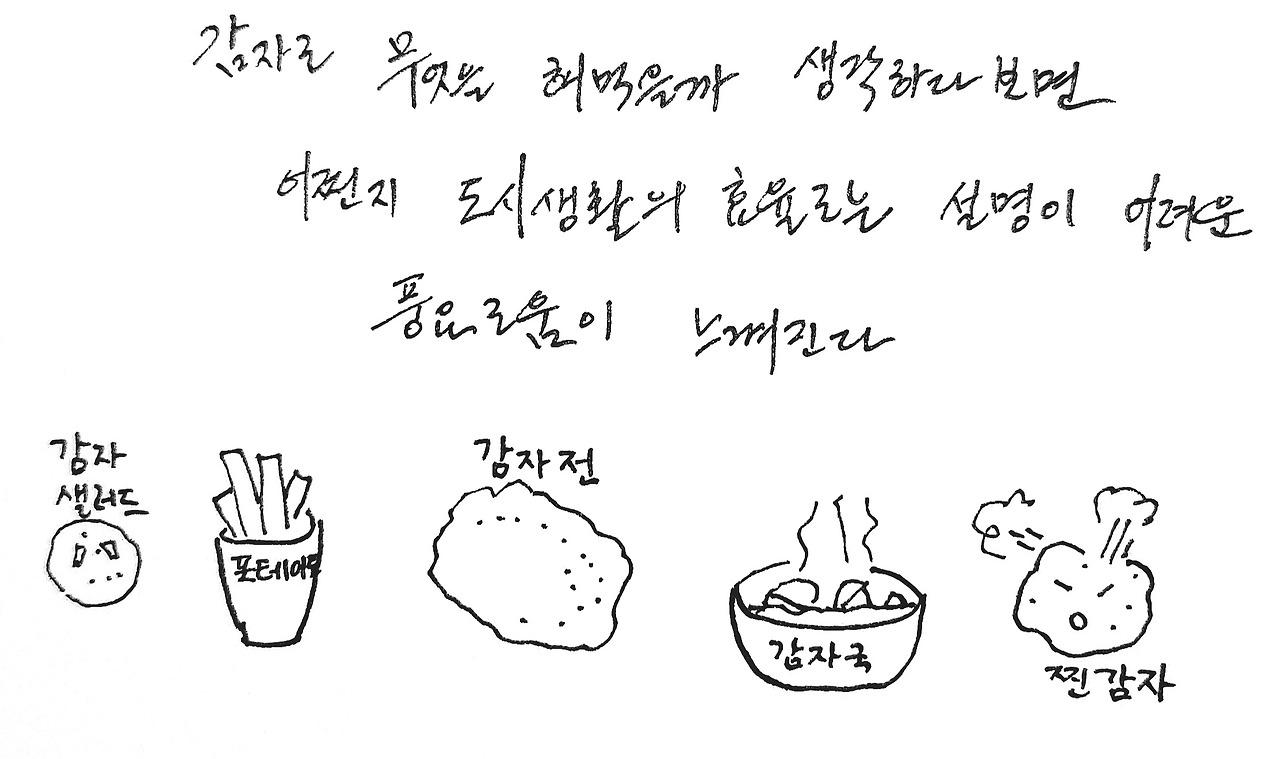 감자로 무엇을 해먹을까 생각하다보면
어쩐지 도시생활의 효율로는 설명이 어려운
풍요로움이 느껴진다
감자
샐러드
포테이토
감자전
감자국
찐감자